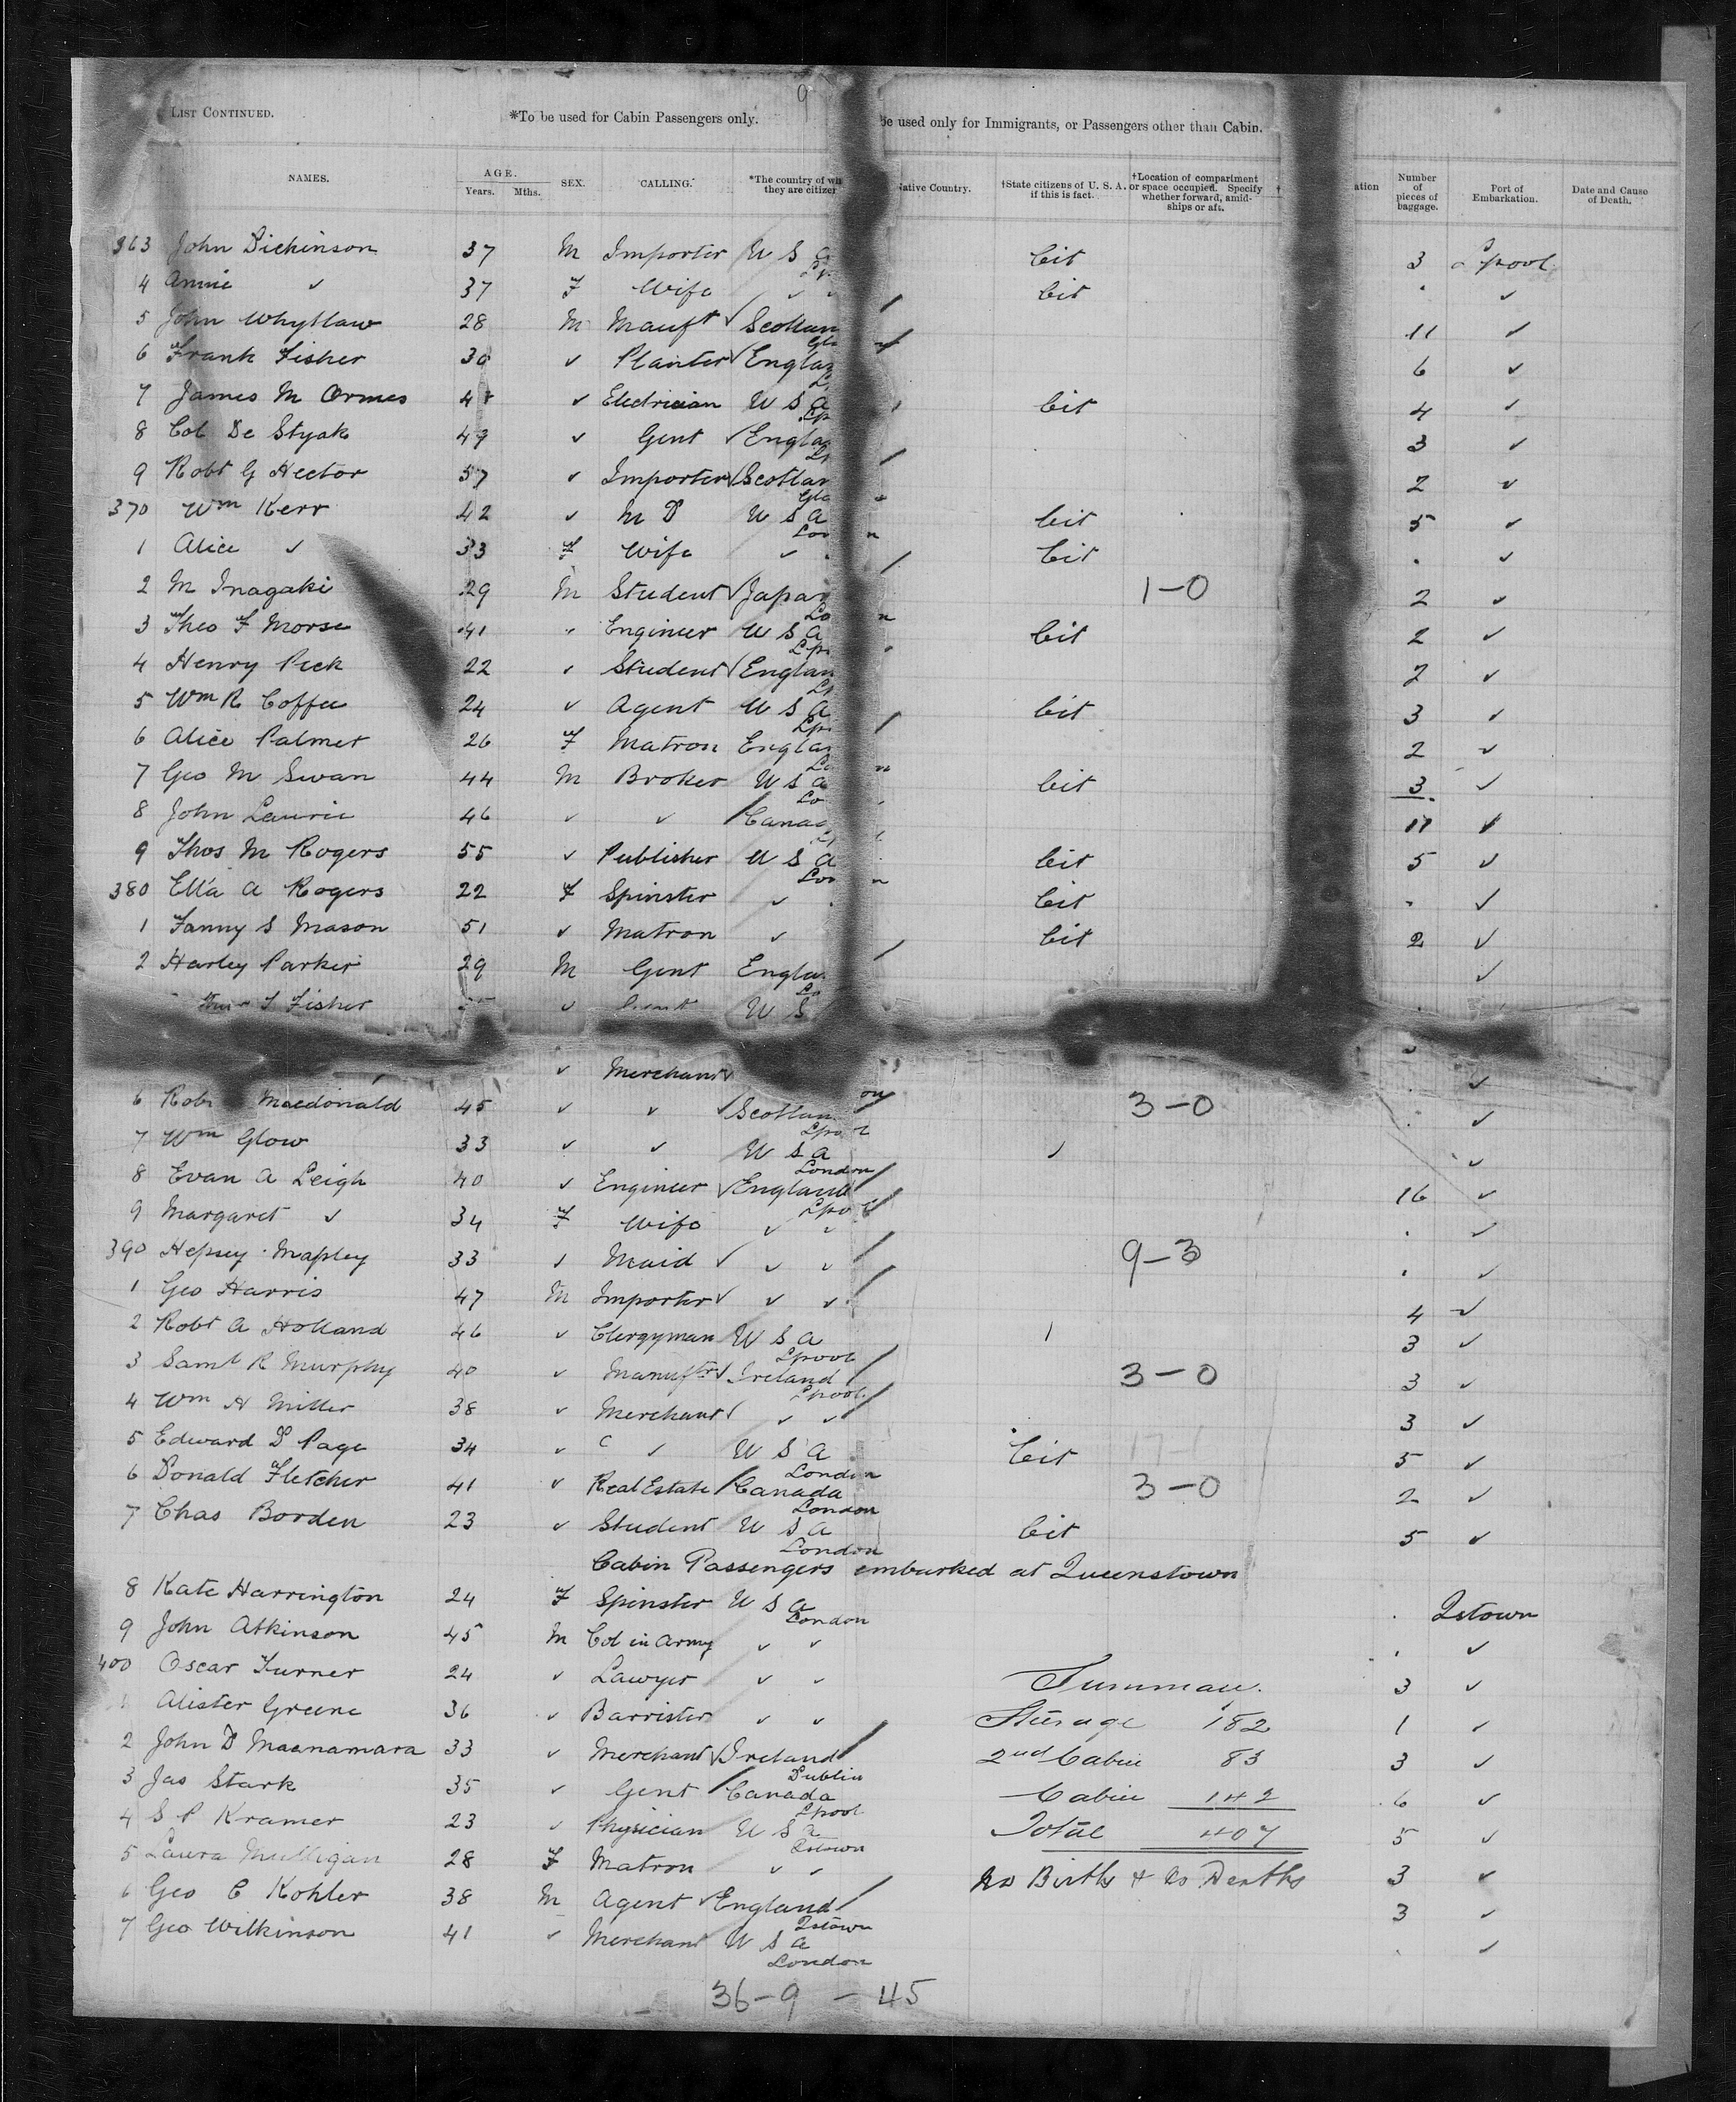 9
LIST CONTINUED. *To be used for Cabin Passengers only. be used only for Immigrants, or Passengers other than Cabin.
NAMES. AGE. Years. Mths. SEX. CALLING. *The country of wh they are citizen Native Country. †State citizens of U. S. A. if this is fact. †Location of compartment or space occupied. Specify whether forward, amidships or aft. ation Number of pieces of baggage. Port of Embarkation. Date and Cause of Death.
363 John Dickinson 37 M Importer U S A Cit 3 Lpool
4 Annie ✓ 37 F Wife ✓ ✓ Cit . ✓
5 John Whytlaw 28 M Mauft ✓ Scotlan 11 ✓
6 Frank Fisher 30 ✓ Planter ✓ Englan 6 ✓
7 James M Ormes ✓ Electrician U S A Cit 4 ✓
8 Col De Styak 49 ✓ Gent ✓ Englan 3 ✓
9 Robt G Hector 57 ✓ Importer ✓ Scotlan 2 ✓
370 Wm Kerr 42 ✓ M D U S A Cit 5 ✓
1 Alice ✓ 33 F Wife ✓ Cit . ✓
2 M Inagaki 29 M Student ✓ Japan 1-0 2 ✓
3 Theo F Morse 41 " Engineer U S A Cit 2 ✓
4 Henry Peek 22 " Student ✓ Englan 2 ✓
5 Wm R Coffee 24 ✓ Agent U S A Cit 3 ✓
6 Alice Palmer 26 F Matron Englan 2 ✓
7 Geo M Swan 44 M Broker U S A Cit 3 ✓
8 John Laurie 46 ✓ ✓ Canad 11 ✓
9 Thos M Rogers 55 ✓ Publisher U S A Cit 5 ✓
380 Ella A Rogers 22 F Spinster ✓ Cit . ✓
1 Fanny S Mason 51 ✓ Matron ✓ Cit 2 ✓
2 Harley Parker 29 M Gent Englan ✓
Fisher ✓ U S
✓ Merchant ✓
6 Rob Macdonald 45 ✓ ✓ ✓ Scotlan 3-0 . ✓
7 Wm Glow 33 ✓ ✓ U S A ✓
8 Evan A Leigh 40 ✓ Engineer ✓ England 16 ✓
9 Margaret ✓ 34 F Wife ✓ ✓ . ✓
390 Hepsey Mapley 33 ✓ Maid ✓ ✓ ✓ 9-3 . ✓
1 Geo Harris 47 M Importer ✓ ✓ ✓ 4 ✓
2 Robt A Holland 46 ✓ Clergyman U S A 3 ✓
Lpool
3 Saml R Murphy 40 ✓ Manuftr ✓ Ireland 3-0 3 ✓
Lpool
4 Wm H Miller 38 ✓ Merchant ✓ ✓ ✓ 3 ✓
5 Edward D Page 34 ✓ ✓ U S A Cit 5 ✓
London
6 Donald Fletcher 41 ✓ Real Estate Canada 3-0 2 ✓
London
7 Chas Borden 23 ✓ Student U S A Cit 5 ✓
London
Cabin Passengers embarked at Queenstown
8 Kate Harrington 24 F Spinster U S A . Qstown
London
9 John Atkinson 45 M Col in Army ✓ ✓ . ✓
400 Oscar Turner 24 ✓ Lawyer ✓ ✓ 3 ✓
1 Alister Greene 36 ✓ Barrister ✓ ✓ Steerage 182 1 ✓
2 John D Macnamara 33 ✓ Merchant ✓ Ireland 2nd Cabin 83 3 ✓
Dublin
3 Jas Stark 35 ✓ Gent Canada Cabin 142 6 ✓
Lpool
4 S P Kramer 23 ✓ Physician U S A Total 407 5 ✓
Qstown
5 Laura Mulligan 28 F Matron ✓ ✓ No Births & No Deaths 3 ✓
6 Geo C Kohler 38 M Agent ✓ England 3 ✓
Qstown
7 Geo Wilkinson 41 ✓ Merchant U S A . ✓
London
36-9 - 45